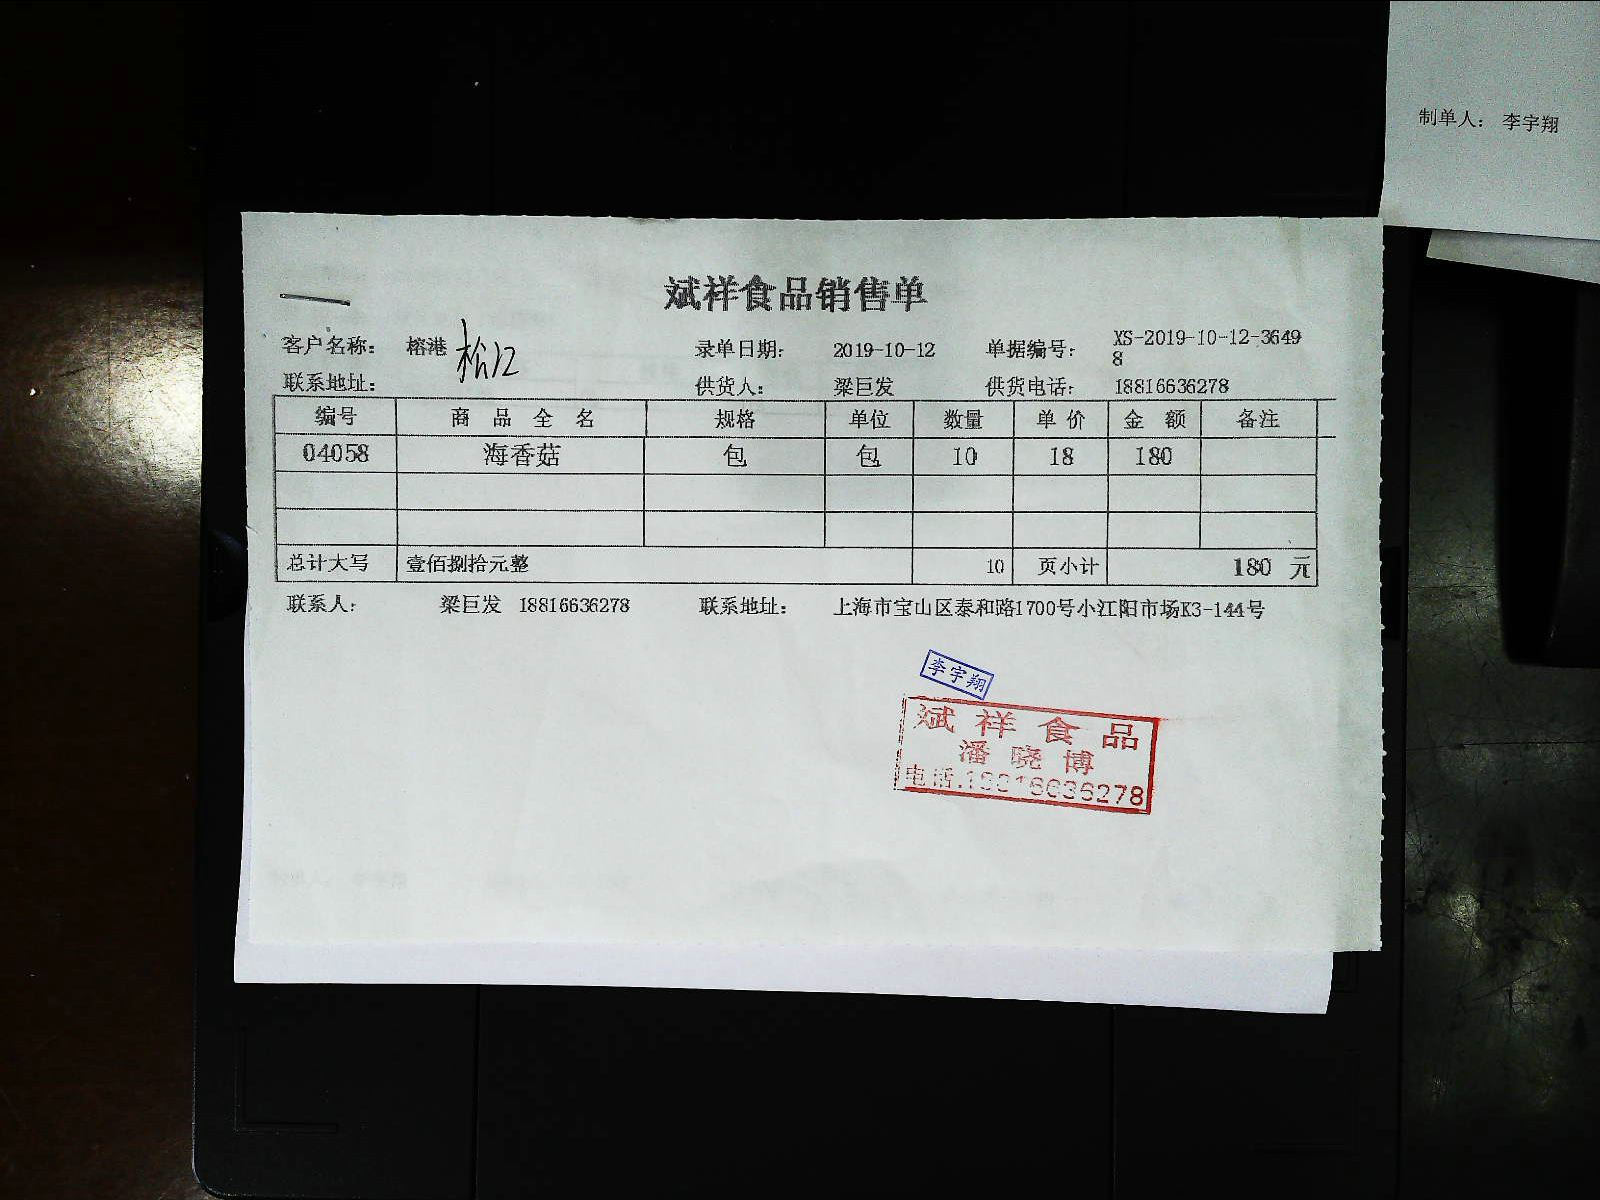 制单人: 李宇翔
斌祥食品销售单
客户名称: 榕港 松江 录单日期: 2019-10-12 单据编号: XS-2019-10-12-3649
8
联系地址: 供货人: 梁巨发 供货电话: 18816636278
编号 商品全名 规格 单位 数量 单价 金额 备注
04058 海香菇 包 包 10 18 180
总计大写 壹佰捌拾元整 10 页小计 180 元
联系人: 梁巨发 18816636278 联系地址: 上海市宝山区泰和路1700号小江阳市场K3-144号
李宇翔
斌祥食品
潘晓博
电话.18816636278